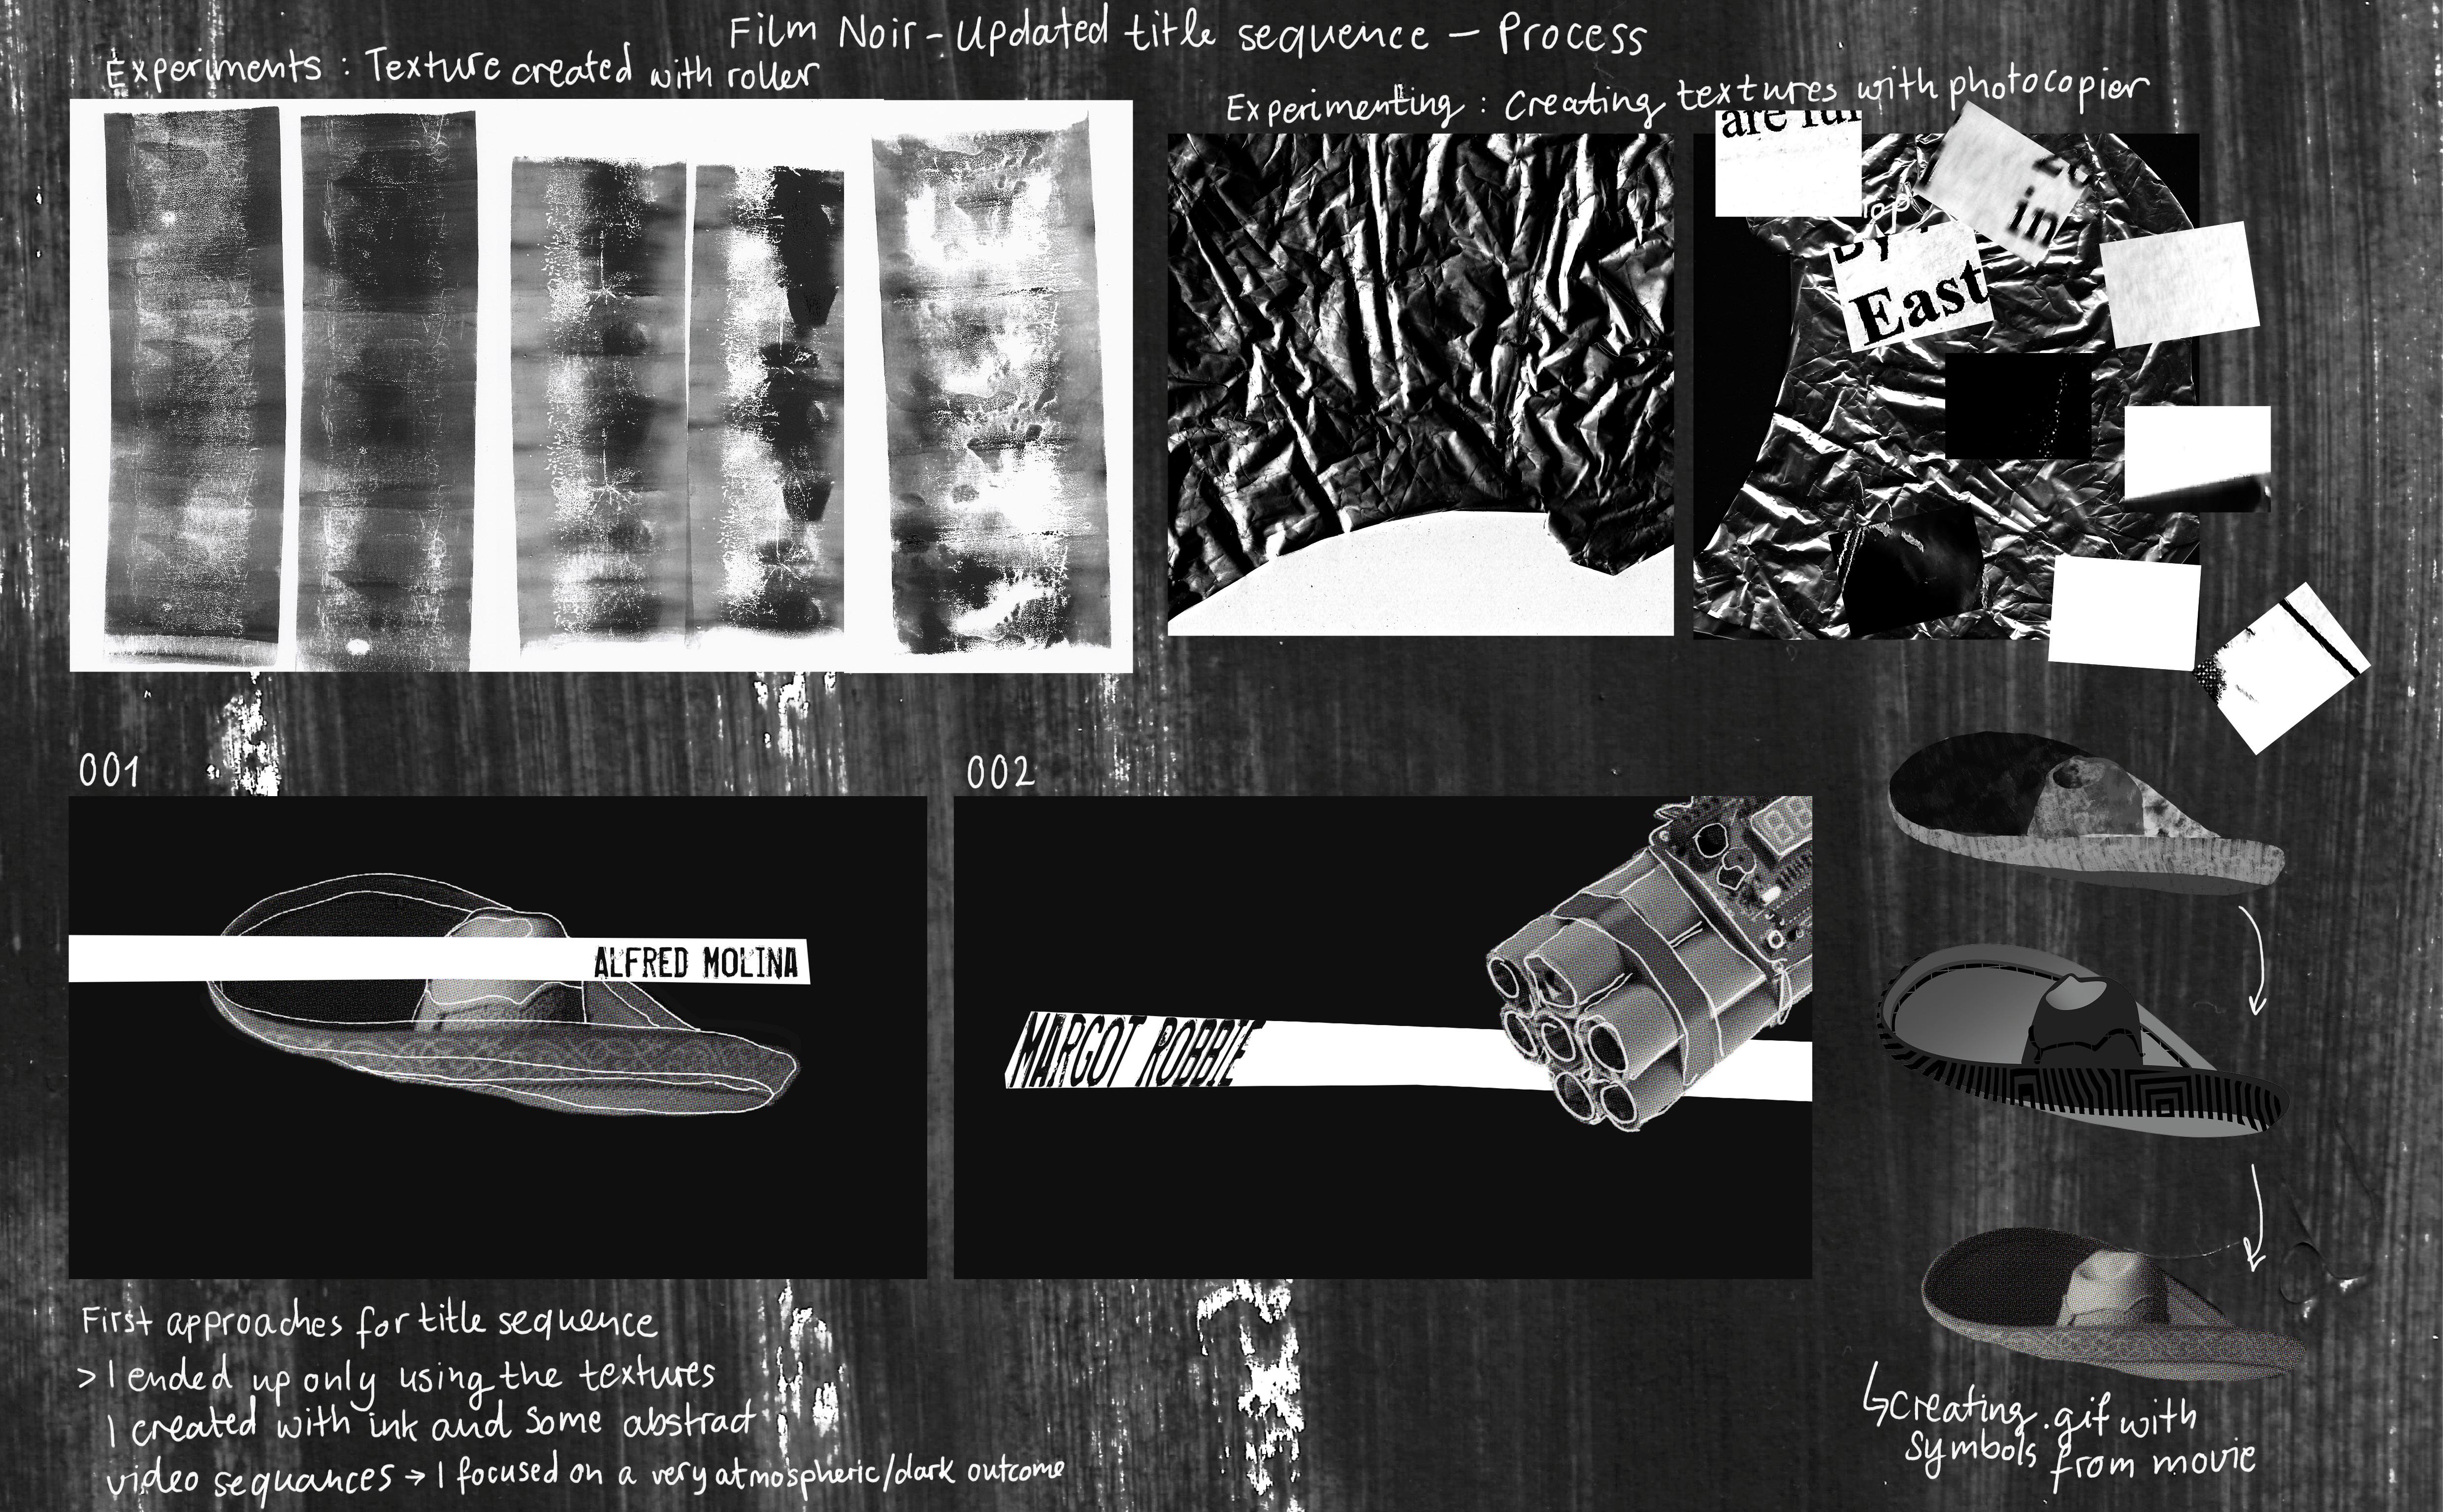 Film Noir - Updated title sequence - Process
Experiments : Texture created with roller
Experimenting : Creating textures with photocopier
are
in
By
East
001
002
ALFRED MOLINA
MARGOT ROBBIE
First approaches for title sequence
> I ended up only using the textures
I created with ink and some abstract
video sequances → I focused on a very atmospheric/dark outcome
↳ creating .gif with
symbols from movie